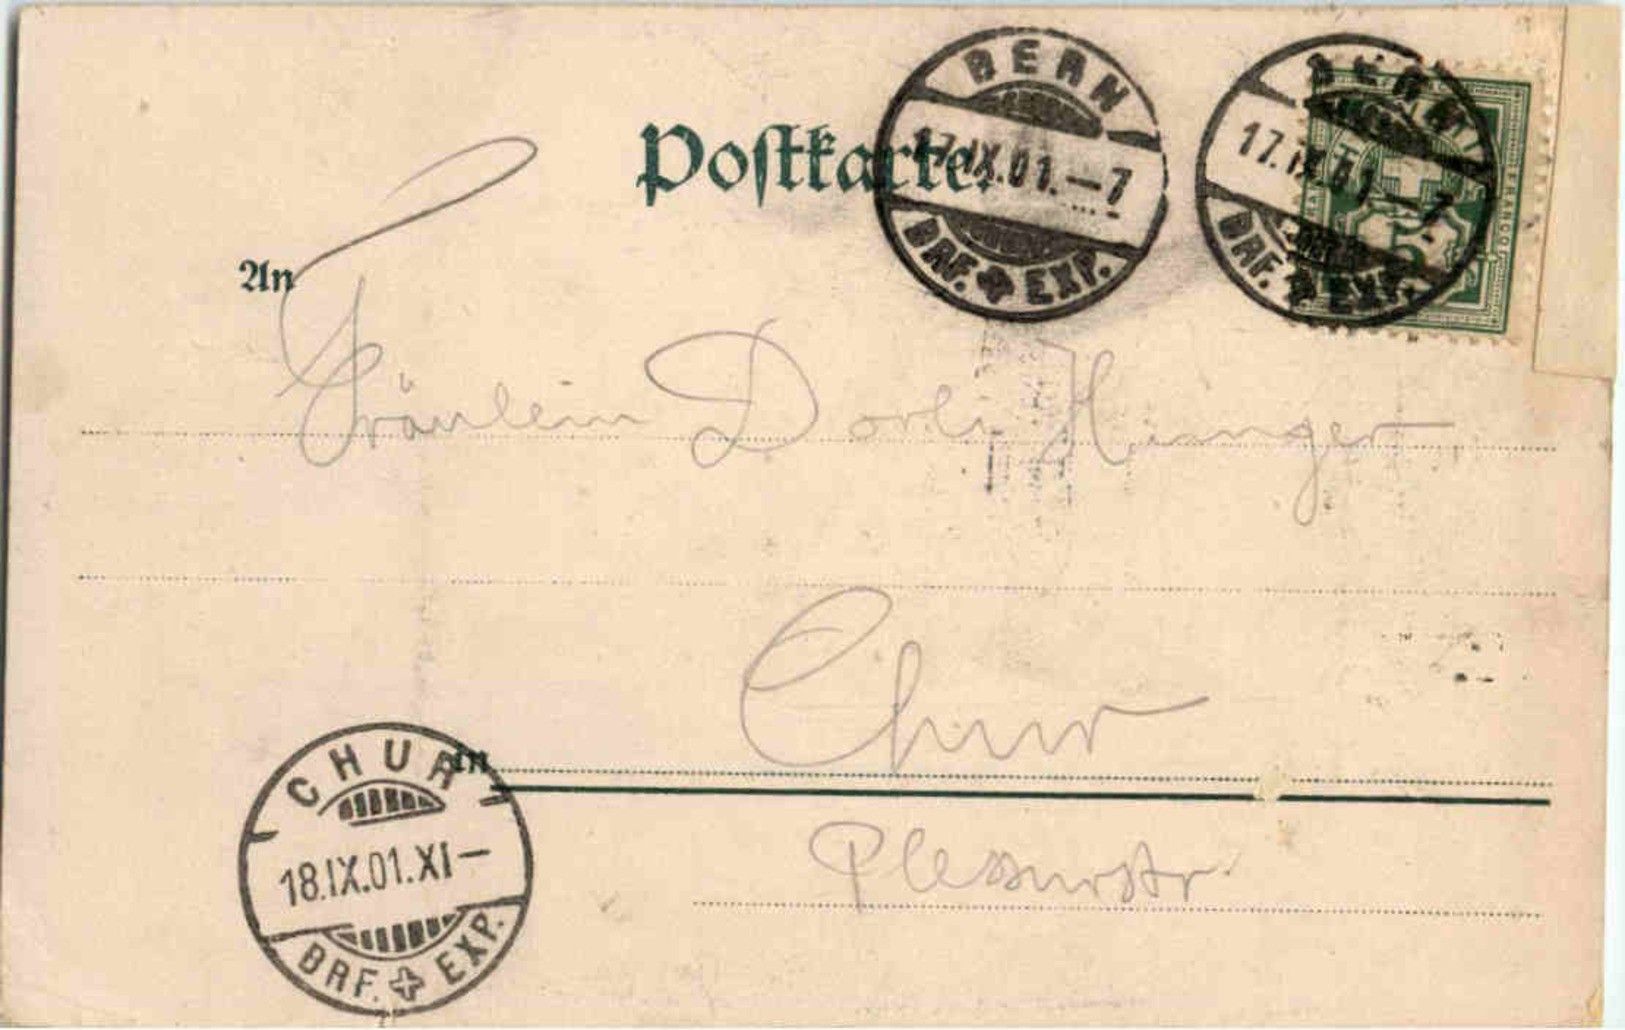 BERN
17.IX.01.—7
BRF. EXP.
BERN
17.IX.01.—7
BRF. EXP.
5
Postkarte.
An
Fräulein Dorli
Chur
In
Plessurstr.
CHUR
18.IX.01.XI—
BRF. EXP.